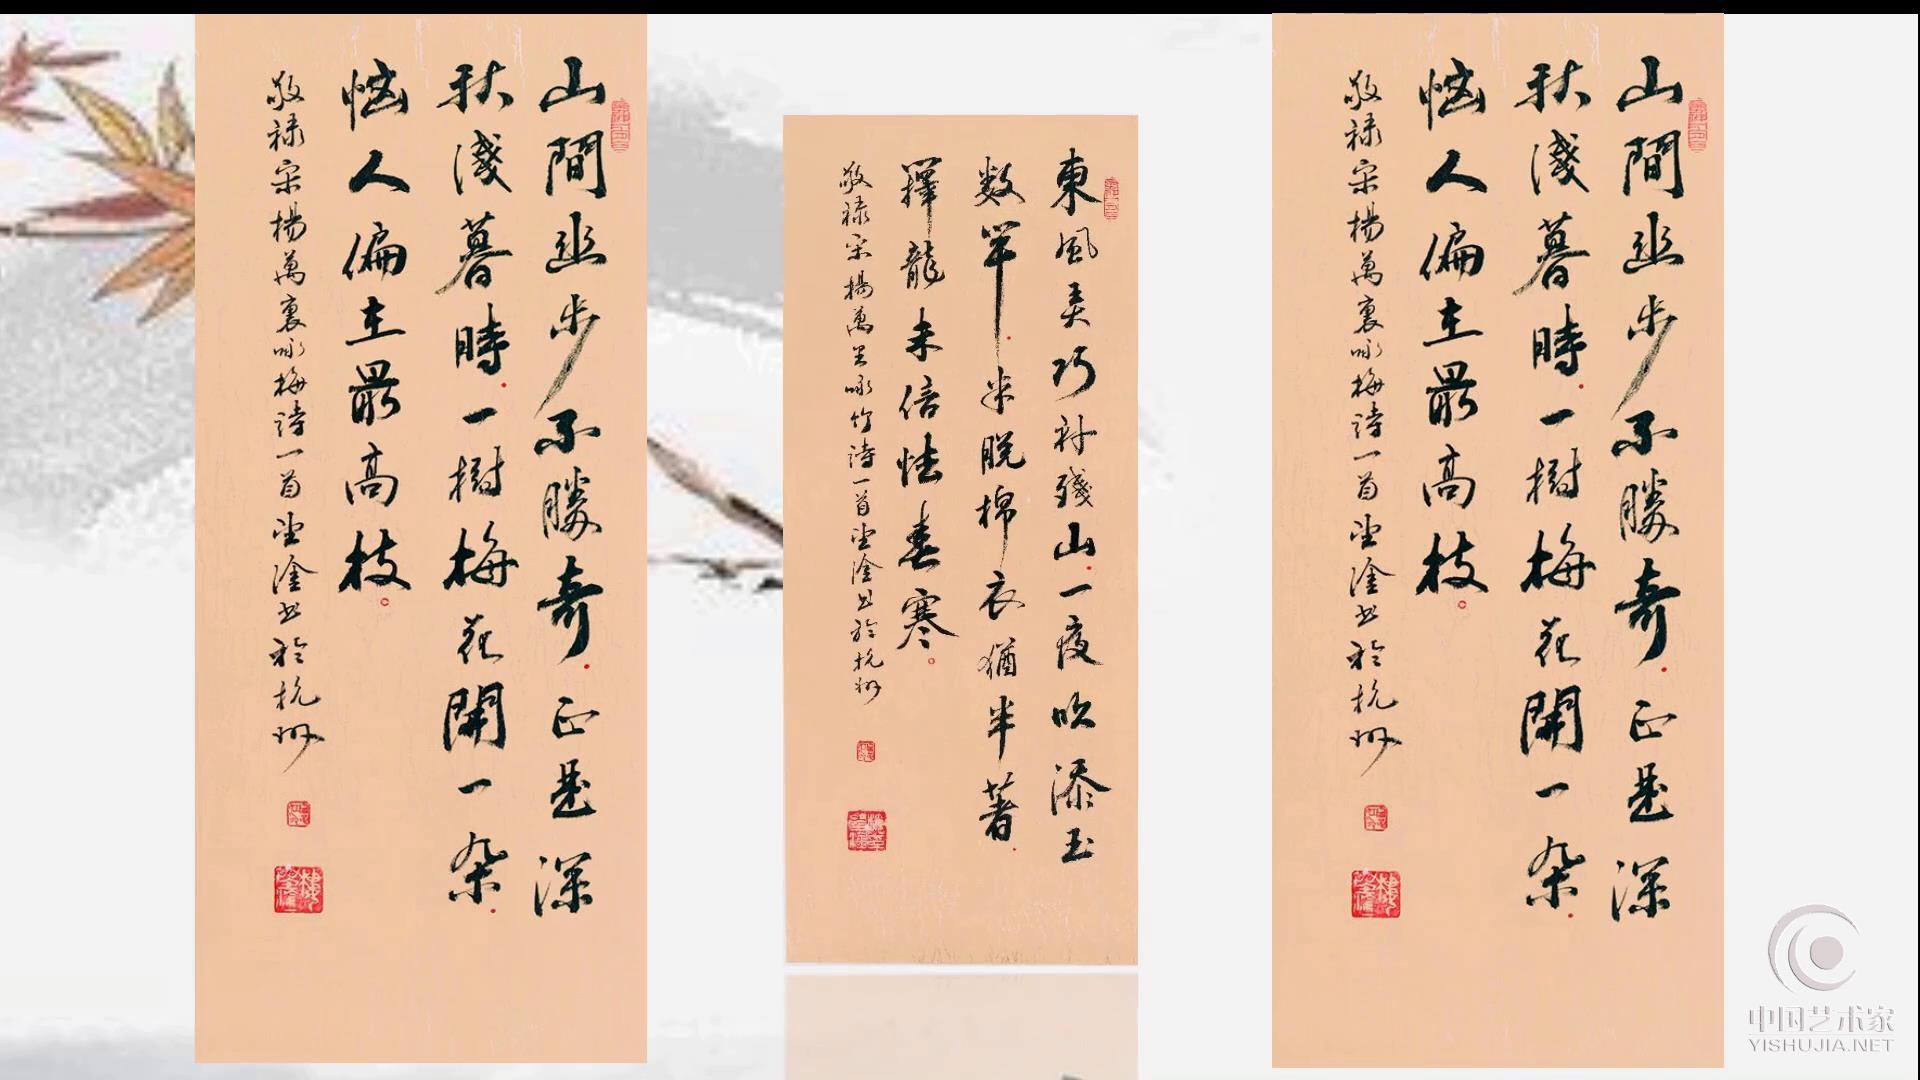 山間幽步不勝奇.正是深
秋淺暮時.一樹梅花開一朵.
惱人偏在最高枝。
敬祿宋楊萬裏咏梅詩一首书於杭州
東風弄巧補殘山.一夜吹添玉
数竿.半脫棉衣猶半著.
擇龍未信怯春寒。
敬祿宋楊萬里咏竹詩一首书於杭州
山間幽步不勝奇.正是深
秋淺暮時.一樹梅花開一朵.
惱人偏在最高枝。
敬祿宋楊萬裏咏梅詩一首书於杭州
中国艺术家
YISHUJIA.NET